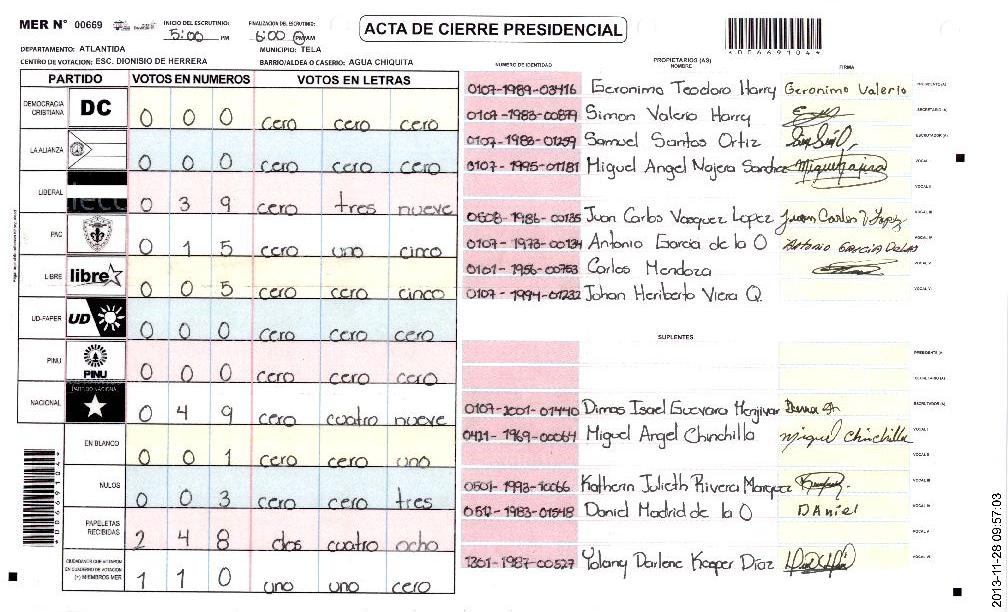 MER N° 00669
INICIO DEL ESCRUTINIO: 5:00 PM
FINALIZACION DEL ESCRUTINIO: 6:00 PM AM
ACTA DE CIERRE PRESIDENCIAL
*00669104*
DEPARTAMENTO: ATLANTIDA
MUNICIPIO: TELA
CENTRO DE VOTACION: ESC. DIONISIO DE HERRERA
BARRIO/ALDEA O CASERIO: AGUA CHIQUITA
PARTIDO VOTOS EN NUMEROS VOTOS EN LETRAS
DEMOCRACIA CRISTIANA DC 0 0 0 cero cero cero
LA ALIANZA 0 0 0 cero cero cero
LIBERAL 0 3 9 cero tres nueve
PAC 0 1 5 cero uno cinco
LIBRE libre 0 0 5 cero cero cinco
UD-FAPER UD 0 0 0 cero cero cero
PINU PINU 0 0 0 cero cero cero
NACIONAL PARTIDO NACIONAL 0 4 9 cero cuatro nueve
EN BLANCO 0 0 1 cero cero uno
NULOS 0 0 3 cero cero tres
PAPELETAS RECIBIDAS 2 4 8 dos cuatro ocho
CIUDADANOS QUE VOTARON EN CUADERNO DE VOTACION (+) MIEMBROS MER 1 1 0 uno uno cero
*00669104*
NUMERO DE IDENTIDAD PROPIETARIOS (AS) NOMBRE FIRMA
0107-1989-03416 Geronimo Teodoro Harry Geronimo Valerio PRESIDENTE (A)
0107-1983-00879 Simon Valerio Harry SECRETARIO (A)
0107-1983-01259 Samuel Santos Ortiz ESCRUTADOR (A)
0107-1995-01181 Miguel Angel Najera Sandrez VOCAL I
VOCAL II
0508-1986-00135 Juan Carlos Vasquez Lopez Juan Carlos V Lopez VOCAL III
0107-1973-00134 Antonio Garcia de la O Antonio Garcia De la O VOCAL IV
0101-1956-00753 Carlos Mendoza VOCAL V
0107-1994-01232 Johan Heriberto Viera Q. VOCAL VI
SUPLENTES
PRESIDENTE (A)
SECRETARIO (A)
0107-1001-01440 Dimas Isael Guevara Menjivar ESCRUTADOR (A)
0421-1969-00064 Miguel Angel Chinchilla Miguel Chinchilla VOCAL I
VOCAL II
0501-1993-10066 Katherin Julieth Rivera Marquez VOCAL III
0512-1983-01548 Daniel Madrid de la O DAniel VOCAL IV
VOCAL V
1301-1987-00527 Yolany Darlene Kooper Diaz VOCAL VI
2013-11-28 09:57:03